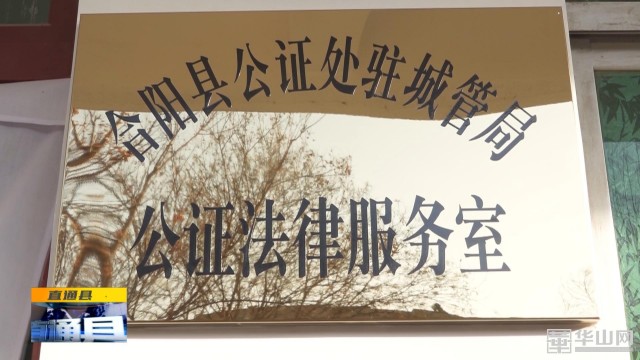 合阳县公证处驻城管局
公证法律服务室
直通县
直通县
华山网